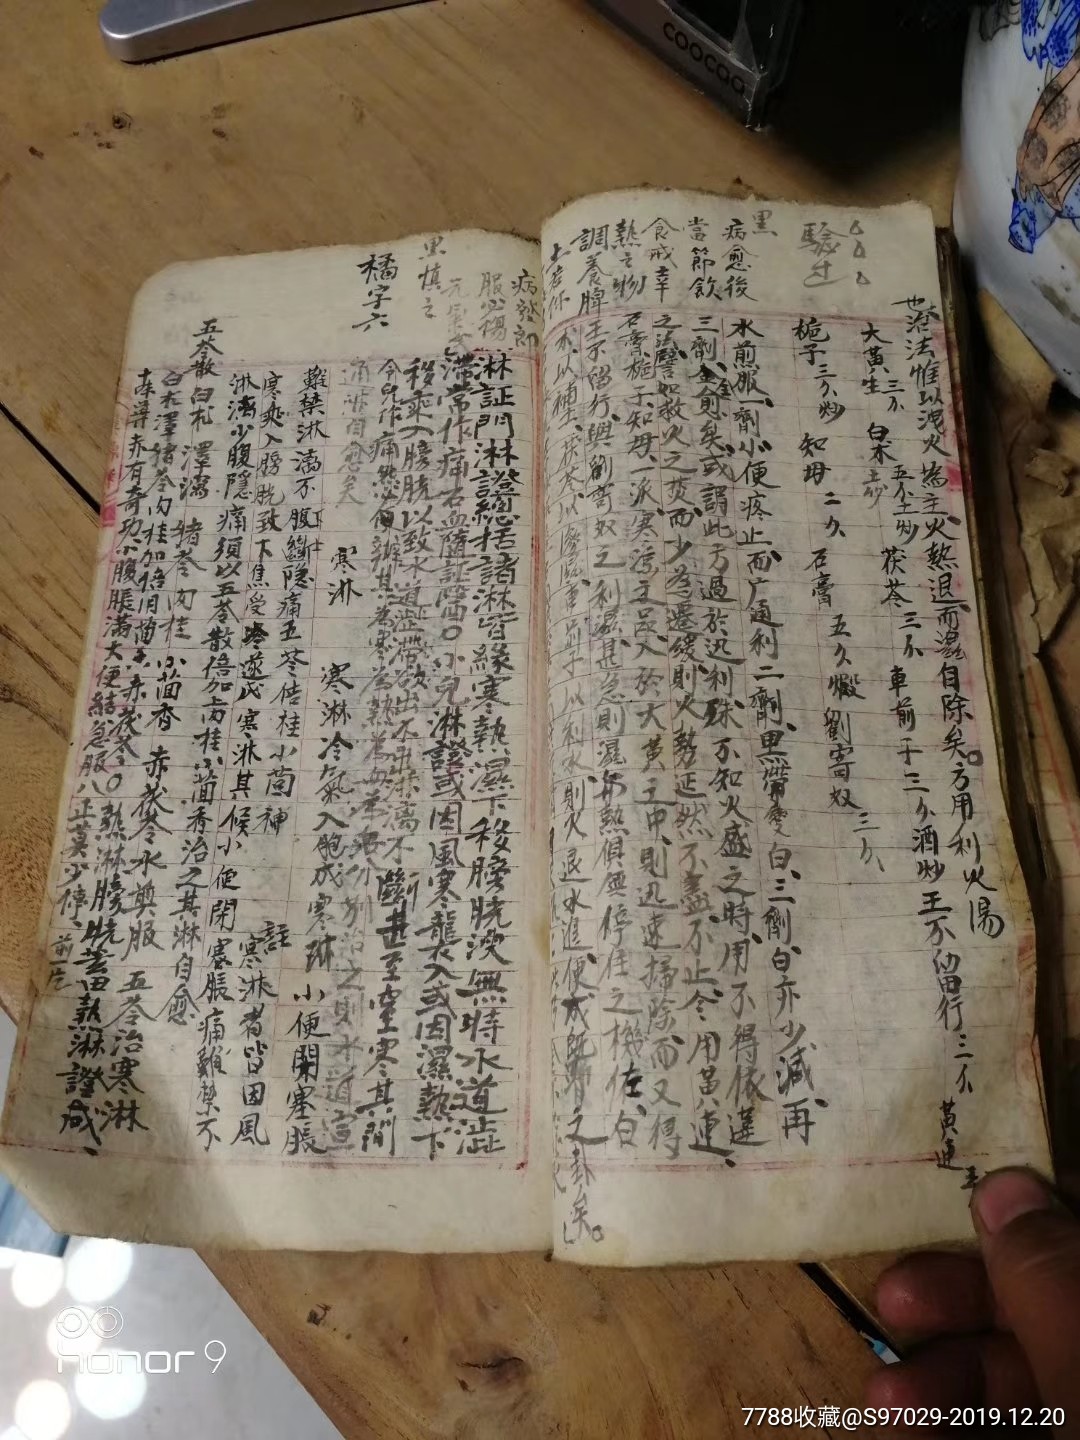 治法惟以洩火為主火熱退而濕自除矣。方用利火湯
大黃生三分 白朮土炒五分 茯苓三分 車前子三分酒炒 王不留行三分 黃連
梔子三分炒 知母二分 石膏五分煅 劉寄奴三分
水煎服一劑小便疼止而广通利二劑黑帶變白三劑白亦少減再
三劑全愈矣或謂此方過於迅利殊不知火盛之時用不得依違
之譬如救火之焚而少為遷緩則火勢延燃不盡不止今用黃連
石膏梔子知母一派寒涼之品入於大黃之中則迅速掃除而又得
王不留行與劉寄奴之利濕甚急則濕與熱俱無停住之機佐白
朮以 茯苓以 車前子以利水則火退水進便成既濟之卦矣。
驗过
黑
病愈後
當節飲
食戒辛
熱之物
調養脾
土若仍
病發即
黑慎之
橘字六
淋証門 淋證總括 諸淋皆緣寒熱濕下移膀胱溲無時水道澀
滯常作痛石血隨証酌○小兒淋證或因風寒襲入或因濕熱下
移乘入膀胱以致水道澀滯欲出不出淋漓不斷甚至窒塞其間
令兒作痛然必細辨其為寒為熱為 分別治之則水道宣
通淋自愈矣
寒淋 寒淋冷氣入胞成寒琳 小便閉塞脹
難禁淋漓不 腹隱痛五苓倍桂小茴神
註 寒淋者皆因風
寒乘入膀胱致下焦受冷遂成寒淋其候小便閉塞脹痛難禁不
淋漓小腹隱痛須以五苓散倍加肉桂小茴香治之其淋自愈
五苓散 白朮 澤瀉 豬苓 肉桂 小茴香 赤茯苓水煎服 五苓治寒淋
白朮澤豬苓肉桂加倍用茴 赤茯苓○熱淋膀胱蓄熱淋證成
 尋赤有奇功小腹脹滿大便結急服八正莫少停
coocaa
honor 9
7788收藏@S97029-2019.12.20